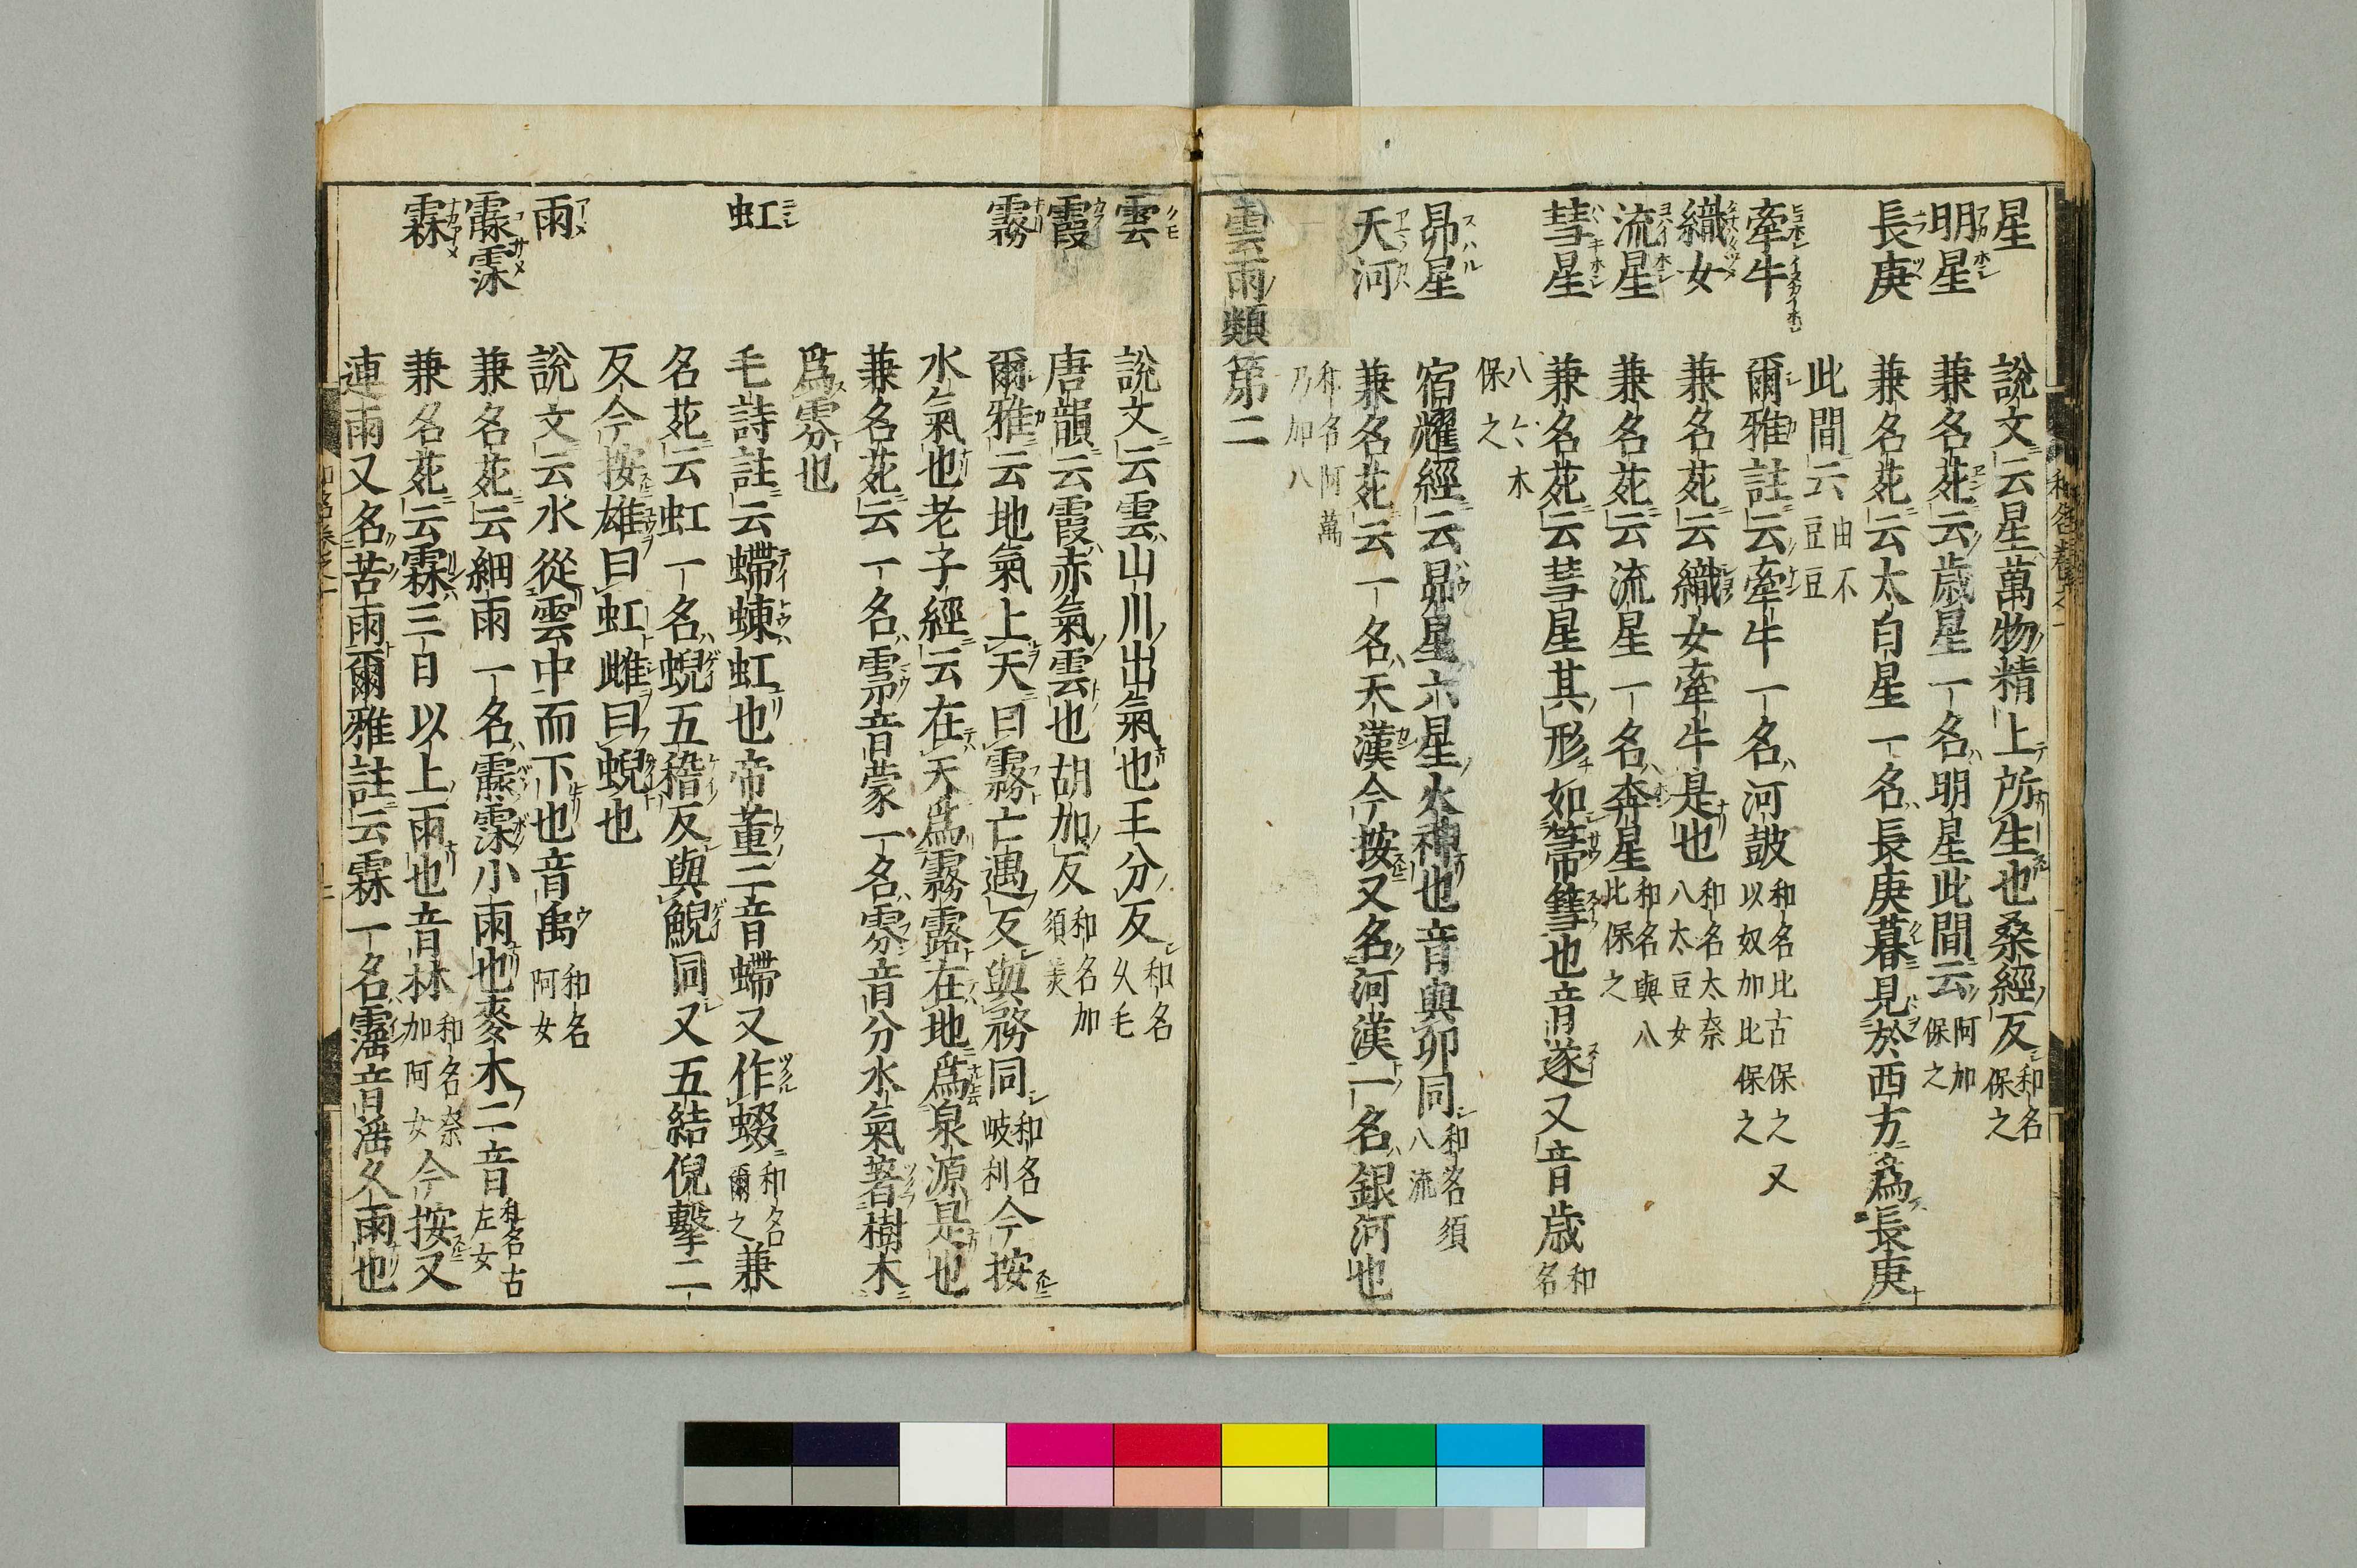 星 說文云星萬物精上所生也桑經反和名保之
明星 兼名苑云歲星一名明星此間云阿加保之
長庚 兼名苑云太白星一名長庚暮見於西方爲長庚
此間云由不豆豆
牽牛 爾雅註云牽牛一名河鼓和名比古保之又以奴加比保之
織女 兼名苑云織女牽牛是也和名太奈八太豆女
流星 兼名苑云流星一名奔星和名與八比保之
彗星 兼名苑云彗星其形如箒篲也音遂又音歲和名
八八木保之
昴星 宿耀經云昴星六星火神也音與卯同和名須八流
天河 兼名苑云一名天漢今按又名河漢一名銀河也
和名阿萬乃加八
雲雨類第二
雲 說文云雲山川出氣也王分反和名久毛
霞 唐韻云霞赤氣雲也胡加反和名加須美
霧 爾雅云地氣上天曰霧亡遇反與務同和名岐利今按
水氣也老子經云在天爲霧露在地爲泉源是也
兼名苑云一名雺音蒙一名雰音分水氣著樹木
爲雰也
虹 毛詩註云螮蝀虹也帝董二音螮又作蝃和名爾之兼
名苑云虹一名蜺五稽反與鯢同又五結倪擊二
反今按雄曰虹雌曰蜺也
雨 說文云水從雲中而下也音禹和名阿女
霡霂 兼名苑云細雨一名霡霂小雨也麥木二音和名古左女
霖 兼名苑云霖三日以上雨也音林和名奈加阿女今按又
連雨又名苦雨爾雅註云霖一名霪音淫久雨也